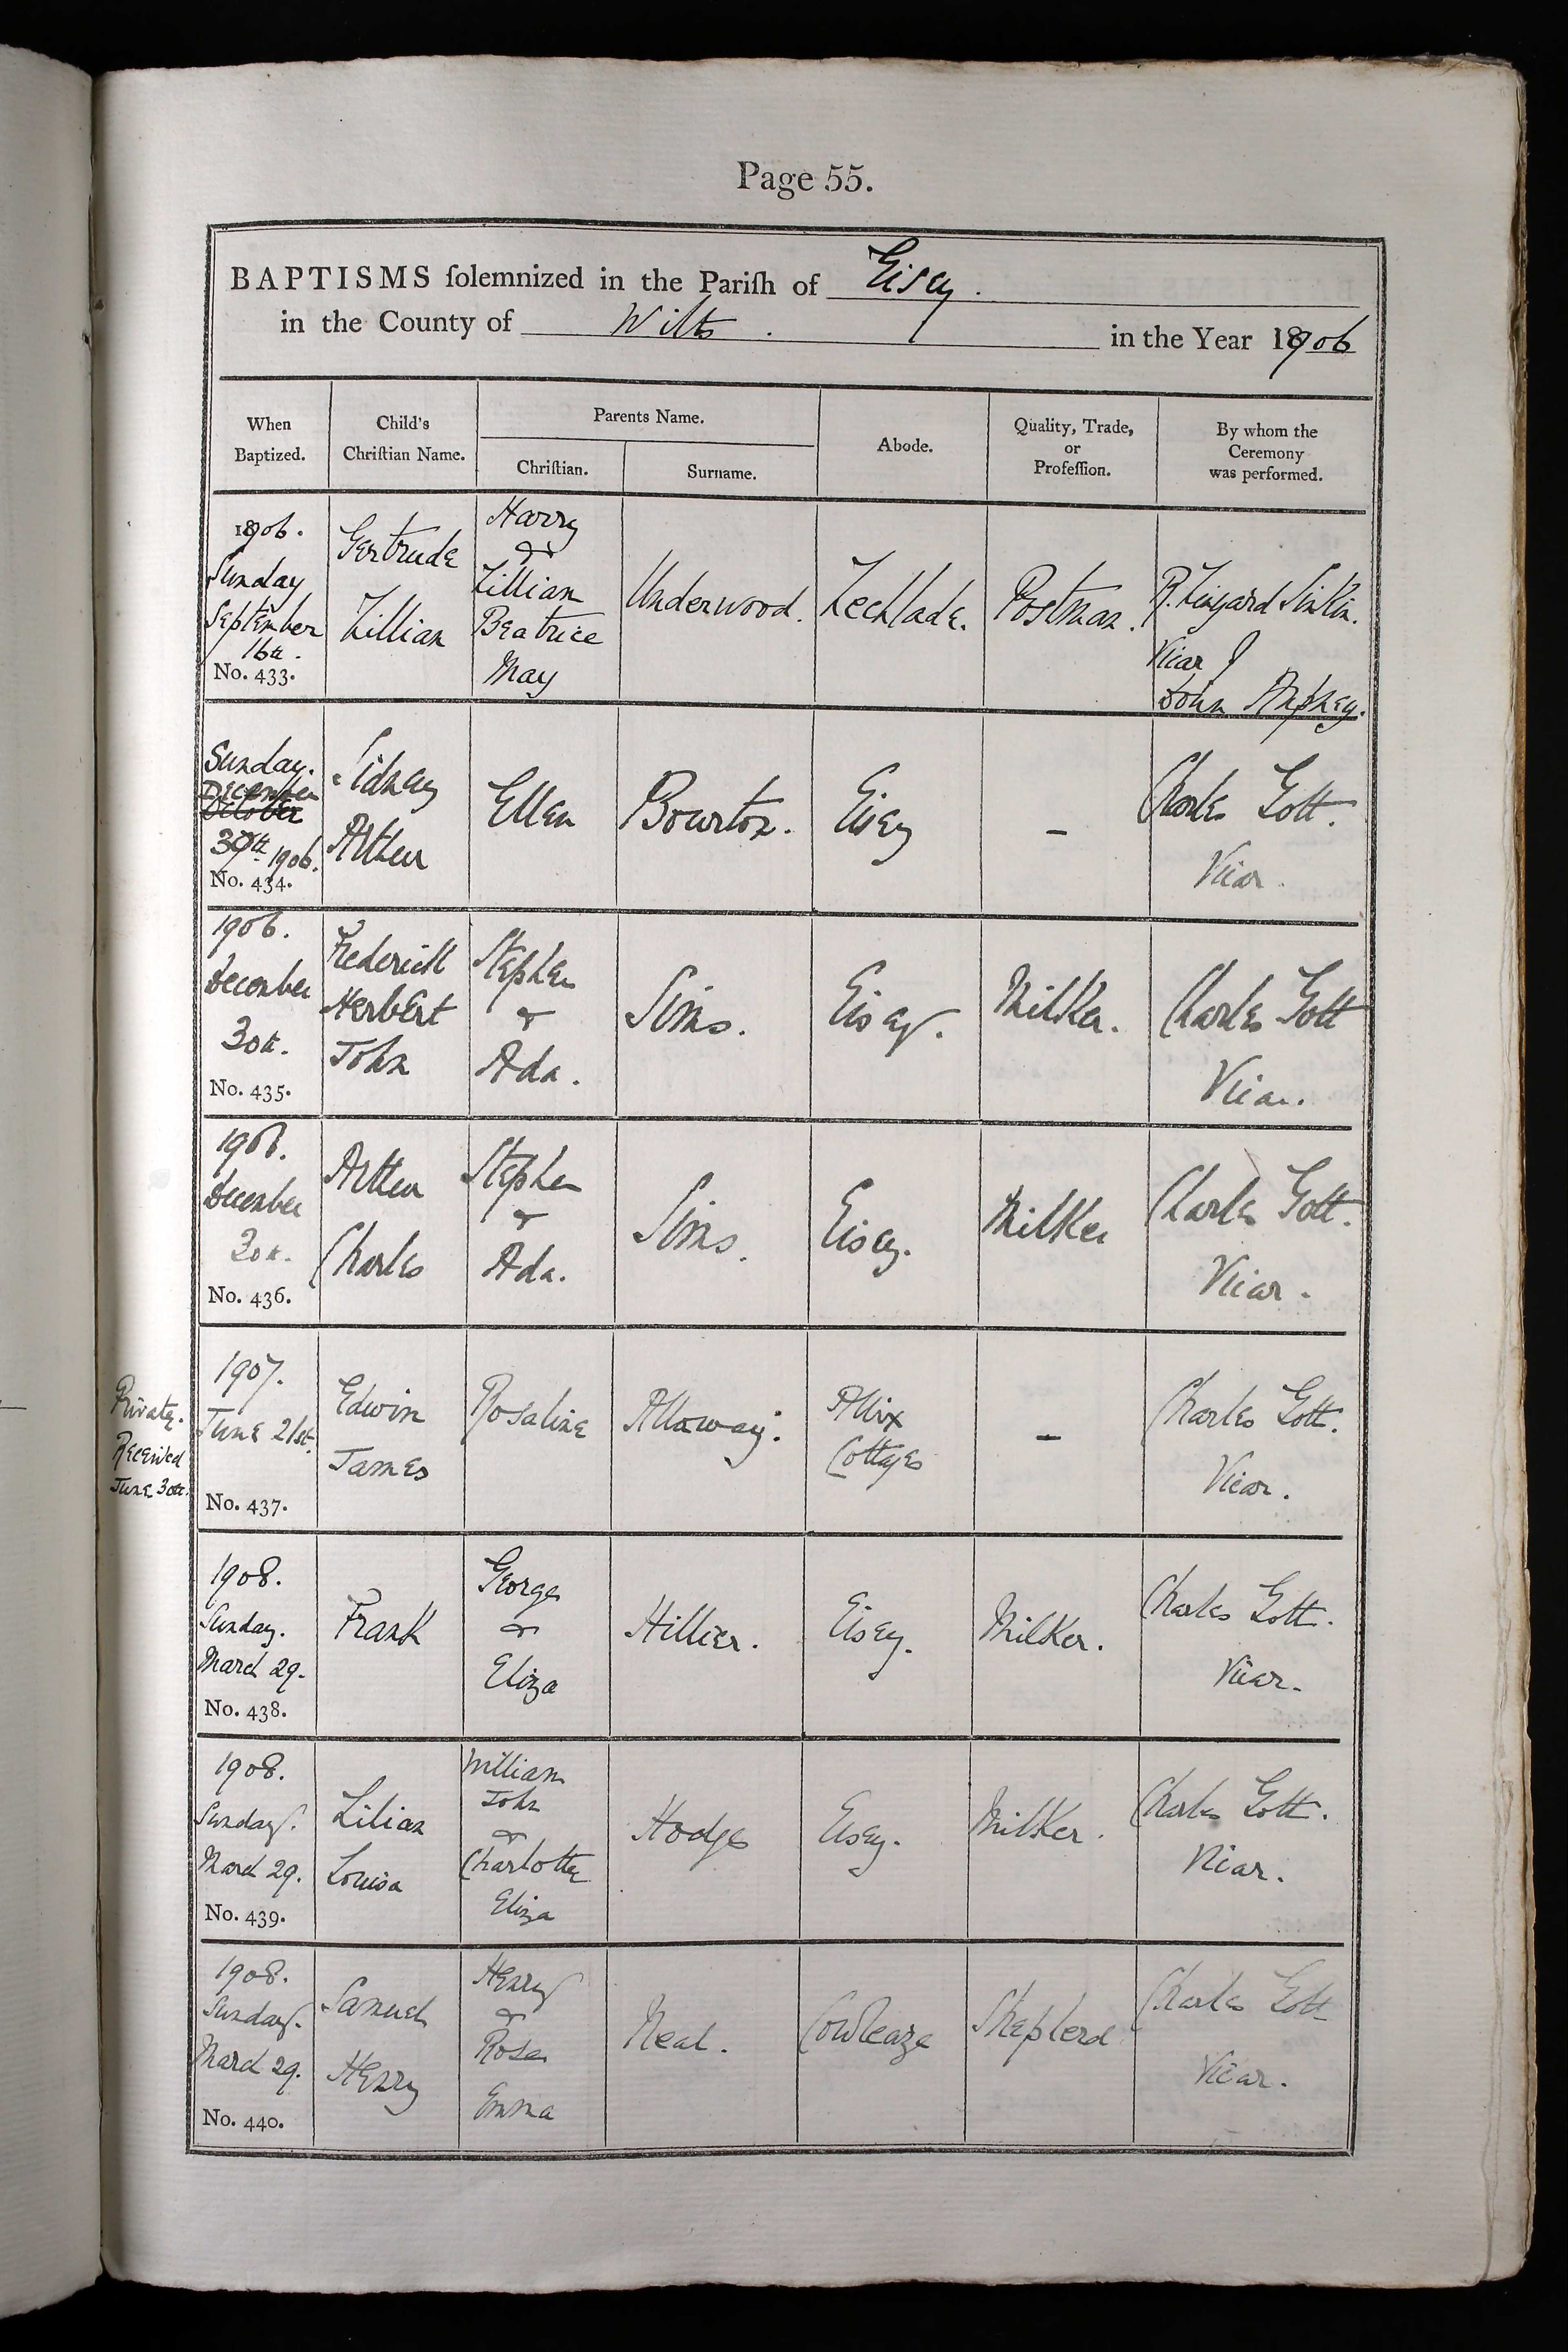 Page 55.
BAPTISMS ſolemnized in the Pariſh of Eisey.
in the County of Wilts. in the Year 1906
When
Baptized.
Child's
Chriſtian Name.
Parents Name.
Chriſtian.
Surname.
Abode.
Quality, Trade,
or
Profeſſion.
By whom the
Ceremony
was performed.
1906.
Sunday
September
16th.
No. 433.
Gertrude
Lillian
Harry
&
Lillian
Beatrice
May
Underwood.
Lechlade.
Postman.
R. Lingard
Vicar
Sunday.
December
October
30th 1906.
No. 434.
Sidney
Arthur
Ellen
Bourton.
Eisey
–
Charles Gott.
Vicar.
1906.
December
30th.
No. 435.
Frederick
Herbert
John
Stephen
&
Ada.
Sims.
Eisey.
Milker.
Charles Gott
Vicar.
1906.
December
30th.
No. 436.
Arthur
Charles
Stephen
&
Ada.
Sims.
Eisey.
Milker
Charles Gott.
Vicar.
Private.
Received
June 30th.
1907.
June 21st.
No. 437.
Edwin
James
Rosaline
Alloway.
Allix
Cottages
–
Charles Gott.
Vicar.
1908.
Sunday.
March 29.
No. 438.
Frank
George
&
Eliza
Hillier.
Eisey.
Milker.
Charles Gott.
Vicar.
1908.
Sunday.
March 29.
No. 439.
Lilian
Louisa
William
John
&
Charlotte
Eliza
Hodges
Eisey.
Milker.
Charles Gott.
Vicar.
1908.
Sunday.
March 29.
No. 440.
Samuel
Henry
Henry
&
Rosa
Emma
Neal.
Cowleaze
Shepherd
Charles Gott
Vicar.